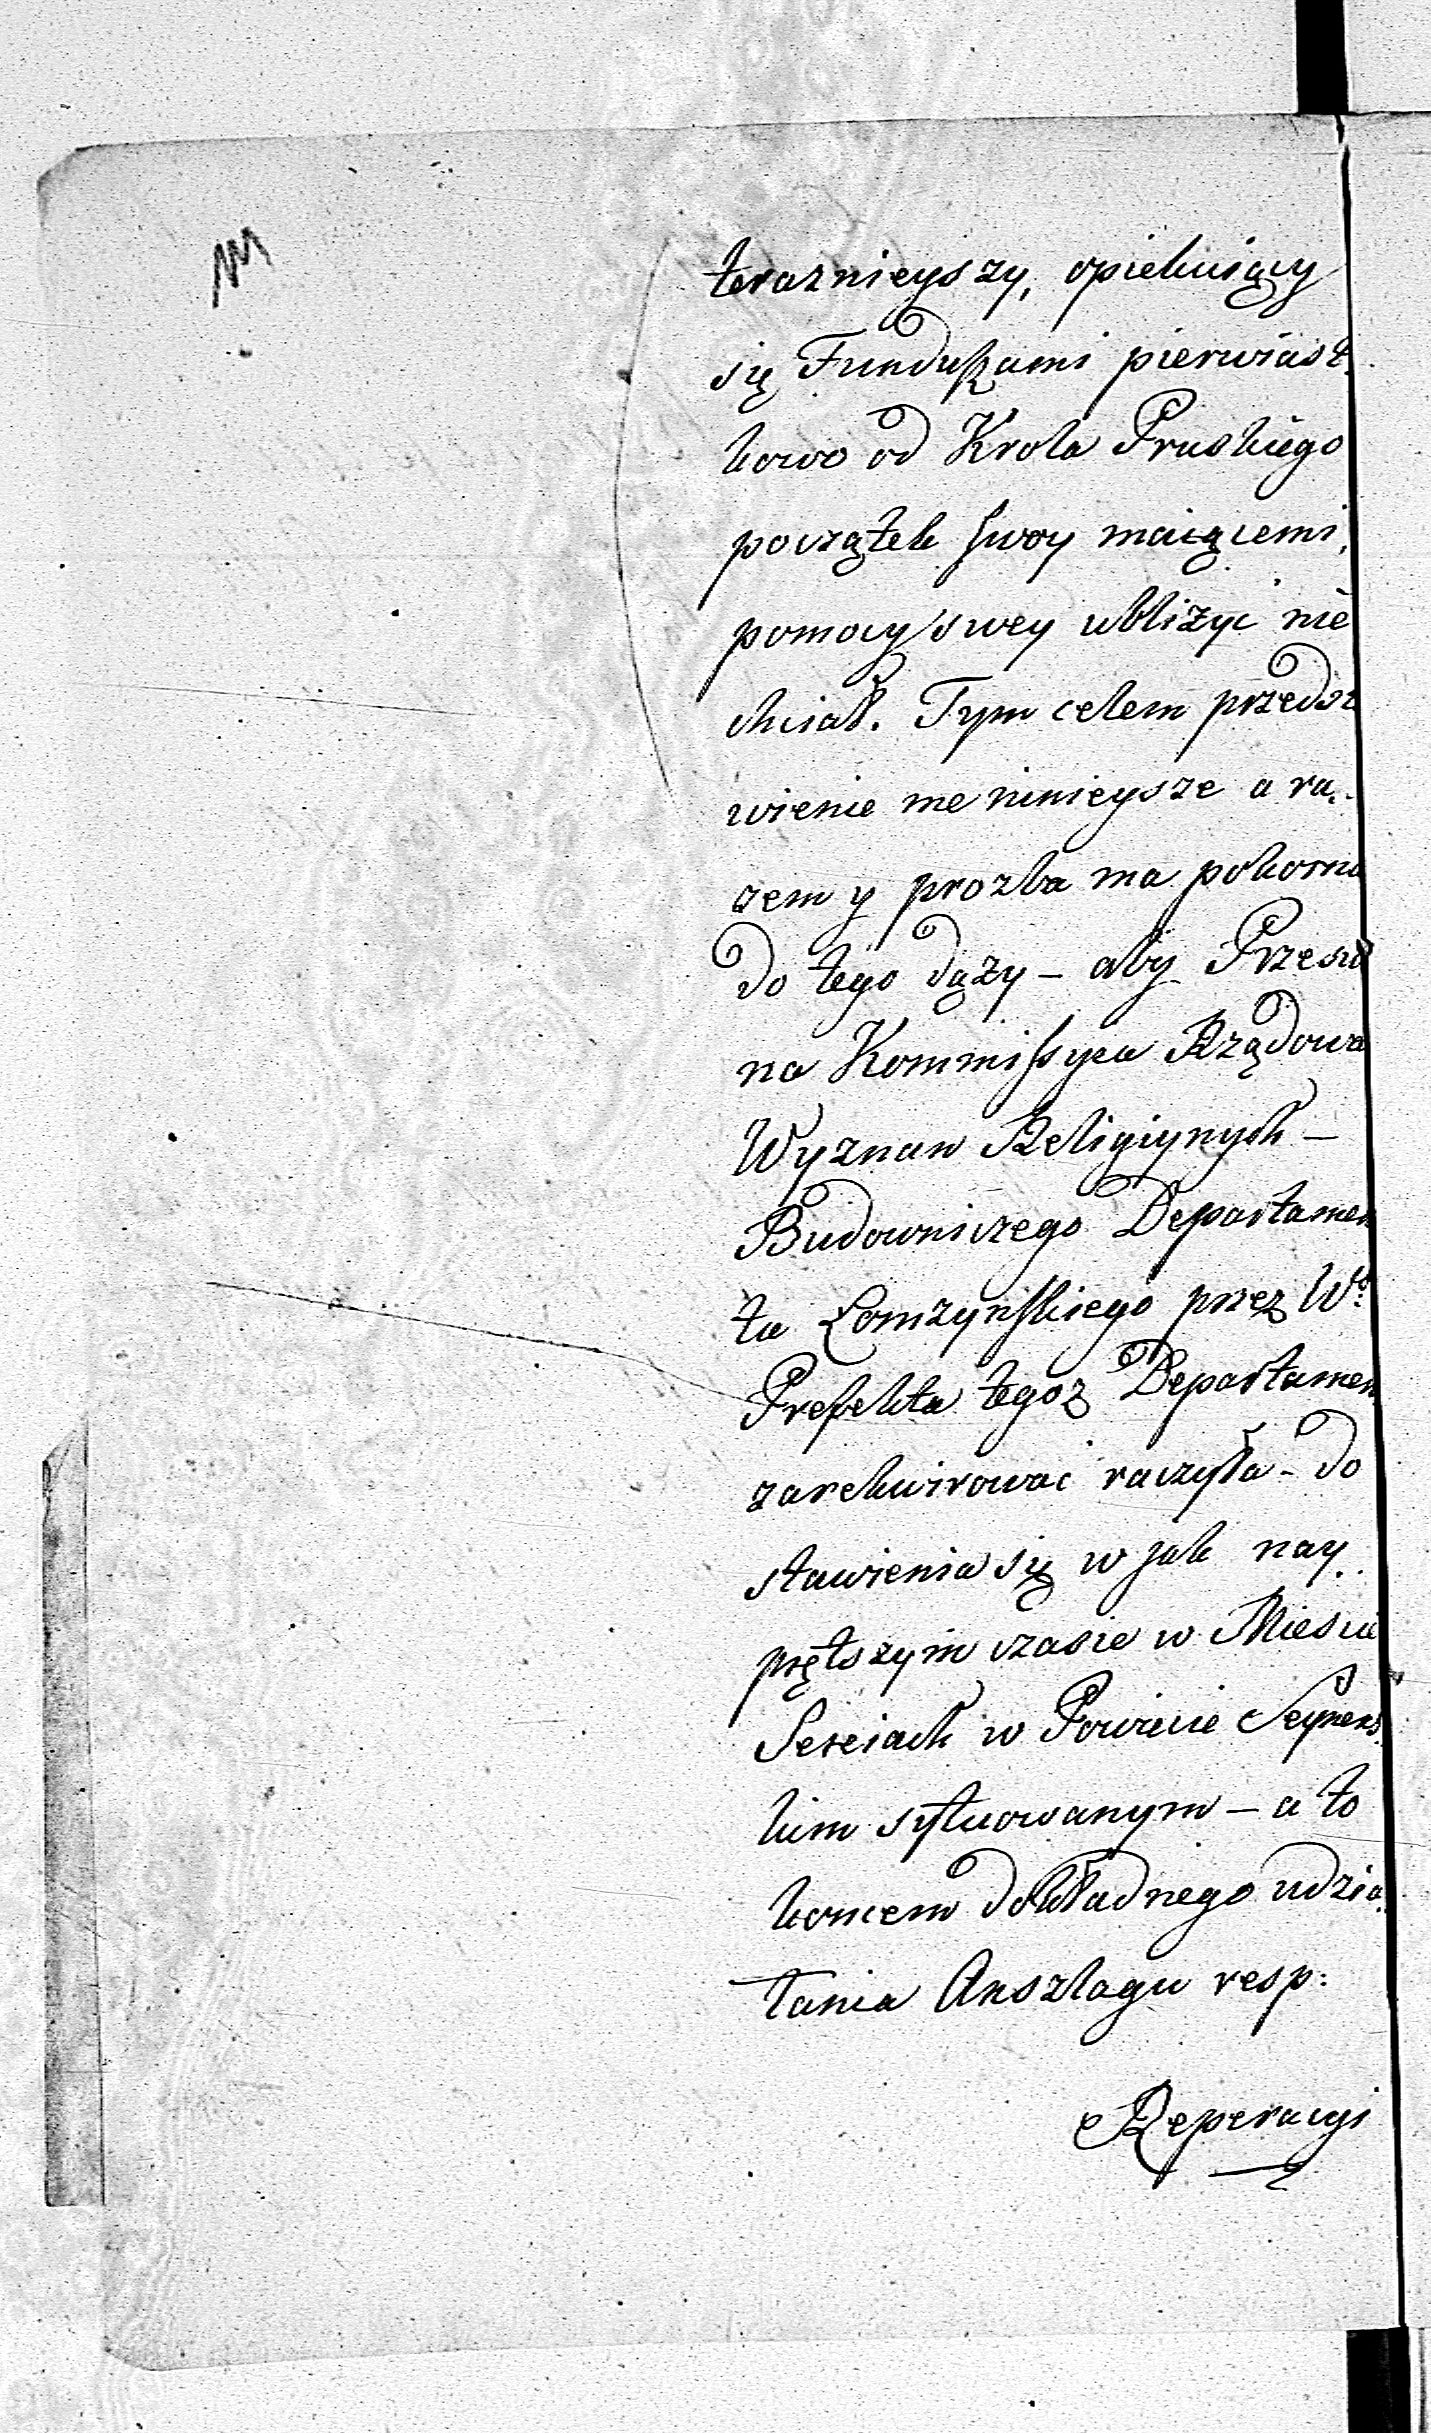 teraznieyszy, opiekuiący
się Funduszami pierwiast
kowo od Krola Pruskiego
początek swoy maiącemi,
pomocy swey ubliżyc nie
chciał. Tym celem przedst
wienie me ninieysze a ra
zem y prozba ma pokorna
do tego dąży – aby Przesw
na Kommissya Rządowa
Wyznan Religiynych –
Budowniczego Departamen
ta Łomzynskiego przez Wo
Prefekta tegoz Departamen
zarekwirowac raczyła – do
stawienia się w jak nay
prętszym czasie w Miescie
Sereiach w Powiecie Seynens
kim sytuowanym – a to
koncem dokładnego udzia
łania Anszlagu resp:
Reperacyi